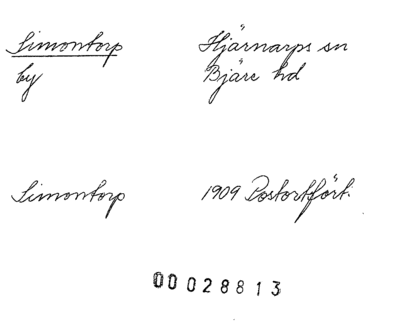 Simontorp Hjärnarps sn
by Bjäre hd
Simontorp 1909 Postortfört.
00028813